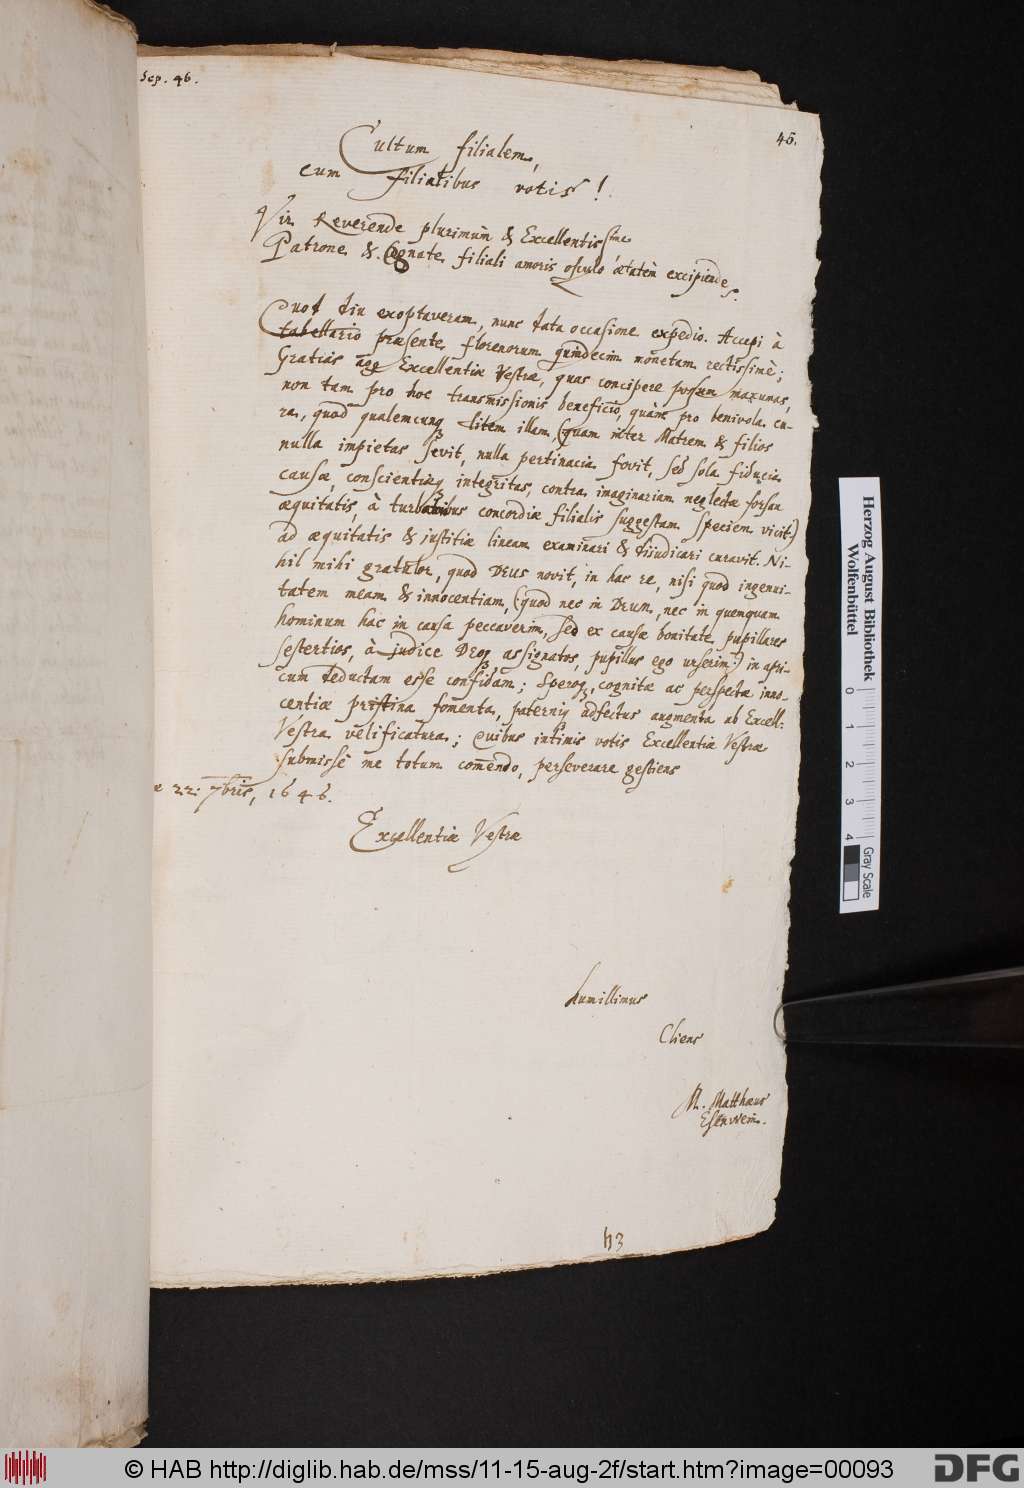 Sep. 46.
45.
Cultum filialem,
cum filialibus votis!
Vir Reverende plurimum & Excellentissime
Patrone & Cognate filiali amoris osculo ætatem excipiende
Quod diu exoptaveram, nunc data occasione expedio. Accepi à
tabellario præsente florenorum quindecim monetam rectissimè;
Gratias ago Excellentiæ Vestræ, quas concipere possum maxumas,
non tam pro hoc transmissionis beneficio, quàm pro benivola cu-
ra, quod qualemcunq; litem illam (quam inter Matrem & filios
nulla impietas sevit, nulla pertinacia fovit, sed sola fiducia
causæ, conscientiæq; integritas, contra imaginariam neglectæ forsan
æquitatis, à turbatoribus concordiæ filialis suggestam speciem vicit:)
ad æquitatis & justitiæ lineam examinari & dijudicari curavit. Ni-
hil mihi gratulor, quod DEUS novit, in hac re, nisi quod ingenui-
tatem meam & innocentiam, (quod nec in DEUM, nec in quemquam
hominum hac in causa peccaverim, sed ex causæ bonitate pupillares
sestertios, à judice DEOq; assignatos, pupillus ego urserim:) in apri-
cum deductam esse confidam; Speroq;, cognitæ ac perspectæ inno-
centiæ pristina fomenta, paterniq; adfectus augmenta ab Excell:
Vestra velificatura; Quibus intimis votis Excellentiæ Vestræ
submissè me totum comendo, perseverare gestiens
22. 7bris, 1646.
Excellentiæ Vestræ
humillimus
Cliens
M. Matthæus
Esenwein.
h3
Herzog August Bibliothek
Wolfenbüttel
0 1 2 3 4
Gray Scale
© HAB http://diglib.hab.de/mss/11-15-aug-2f/start.htm?image=00093
DFG